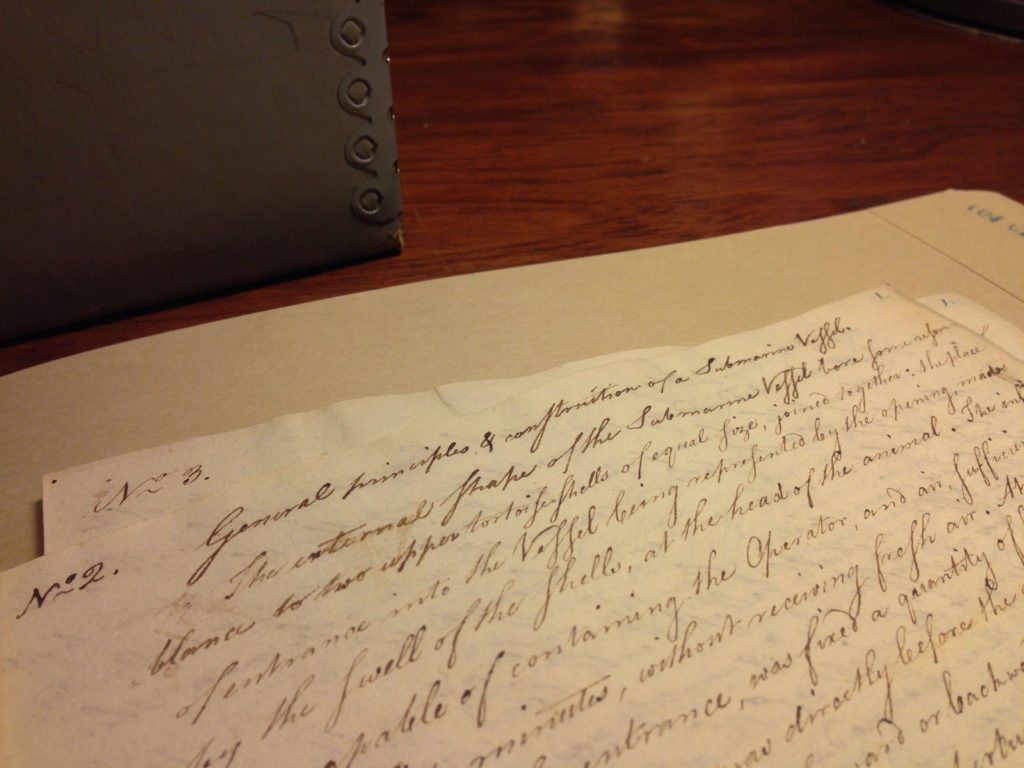 No 3.
No 2.
General principles & construction of a Submarine Vessel.
The external shape of the Submarine Vessel bore some resem
blance to two upper tortoiseshells of equal size, joined together: the place
of entrance into the Vessel being represented by the opening, made
by the swell of the shells, at the head of the animal. The
capable of containing the Operator, and air, sufficient
minutes, without receiving fresh air.
entrance, was fixed a quantity of
directly before the
or
1.
1.